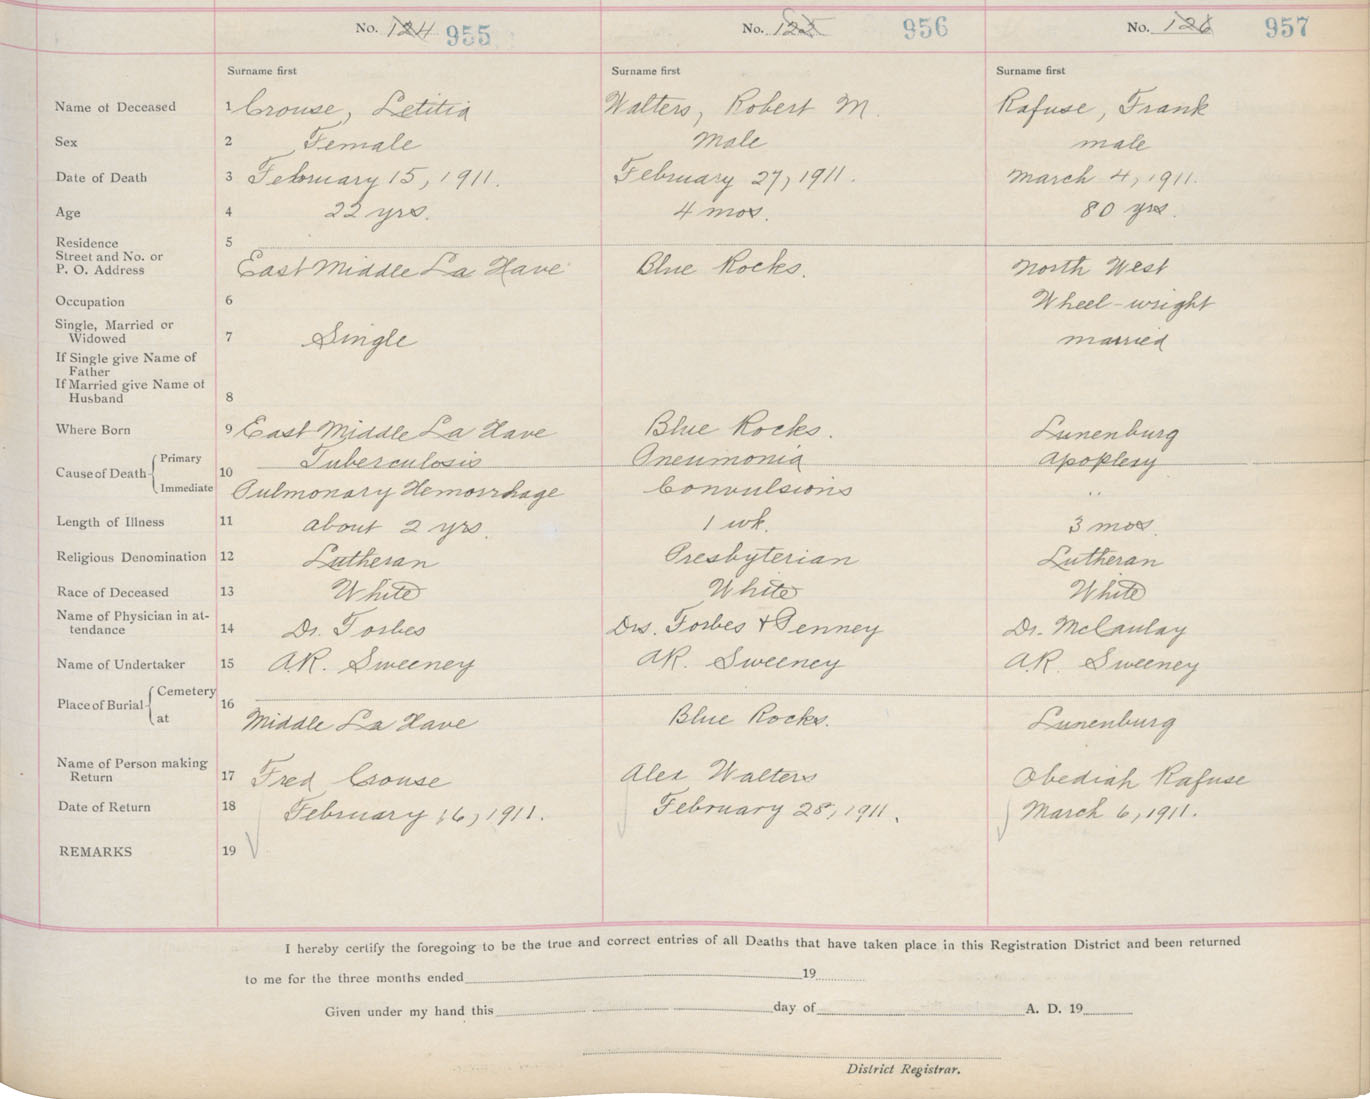 No. 124 955 No. 125 956 No. 126 957
Surname first Surname first Surname first
Name of Deceased 1 Crouse, Letitia Walters, Robert M. Rafuse, Frank
Sex 2 Female Male male
Date of Death 3 February 15, 1911. February 27, 1911. March 4, 1911.
Age 4 22 yrs. 4 mos. 80 yrs.
Residence 5
Street and No. or
P. O. Address East Middle La Have Blue Rocks. North West
Occupation 6 Wheel-wright
Single, Married or
Widowed 7 Single married
If Single give Name of
Father
If Married give Name of
Husband 8
Where Born 9 East Middle La Have Blue Rocks. Lunenburg
Cause of Death Primary 10 Tuberculosis Pneumonia Apoplexy
Immediate Pulmonary Hemorrhage Convulsions "
Length of Illness 11 about 2 yrs. 1 wk. 3 mos.
Religious Denomination 12 Lutheran Presbyterian Lutheran
Race of Deceased 13 White White White
Name of Physician in at-
tendance 14 Dr. Forbes Drs. Forbes & Penney Dr. McCaulay
Name of Undertaker 15 A.R. Sweeney A.R. Sweeney A.R. Sweeney
Place of Burial Cemetery 16
at Middle La Have Blue Rocks. Lunenburg
Name of Person making
Return 17 Fred Crouse Alex Walters Obediah Rafuse
Date of Return 18 February 16, 1911. February 28, 1911. March 6, 1911.
REMARKS 19
I hereby certify the foregoing to be the true and correct entries of all Deaths that have taken place in this Registration District and been returned
to me for the three months ended 19
Given under my hand this day of A. D. 19
District Registrar.